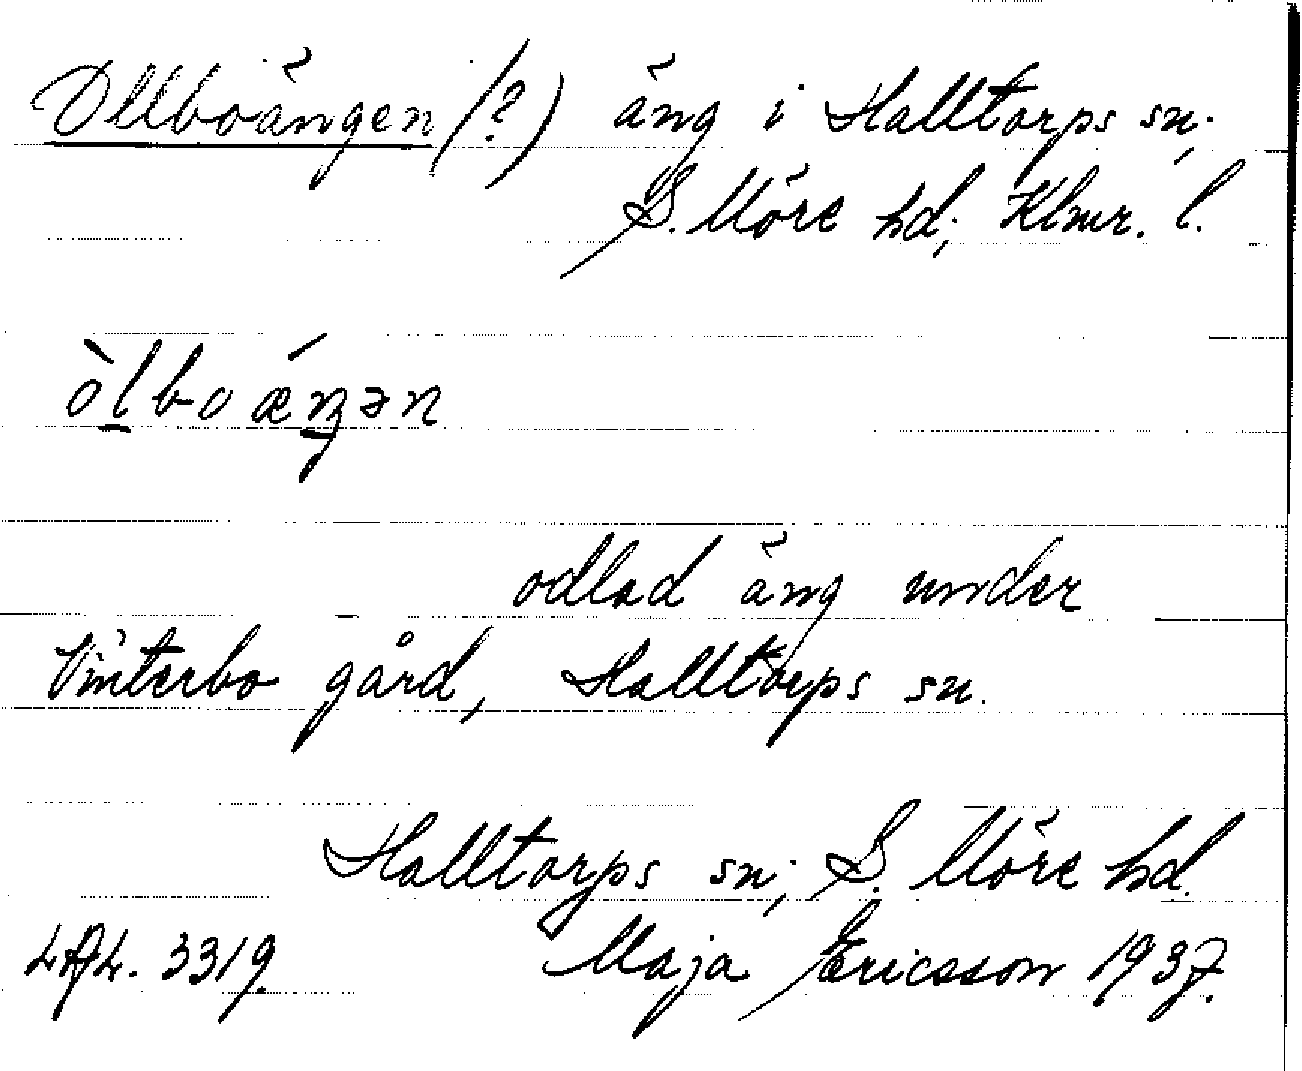 Ollboängen (?) äng i Halltorps sn;
S. Möre hd; Klmr. l.
òlboæ´ŋən
odlad äng under
Vinterbo gård, Halltorps sn.
Halltorps sn; S. Möre hd.
LAL. 3319. Maja Ericsson 1937.